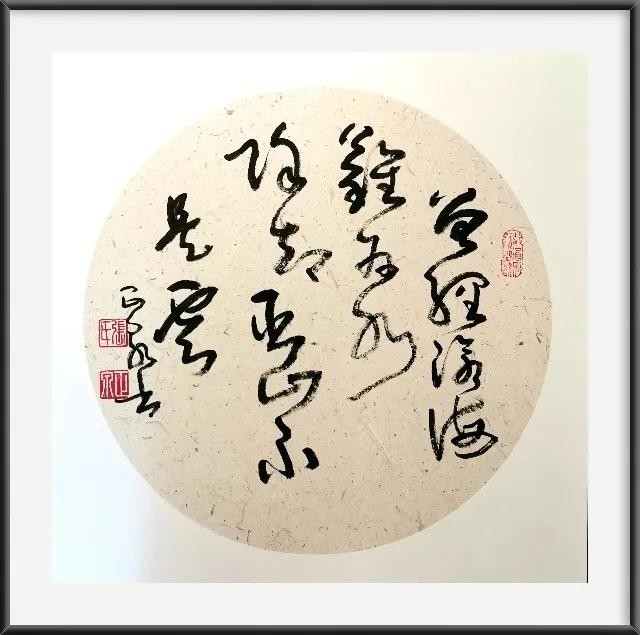 曾經滄海
難為水
除却巫山不
是雲